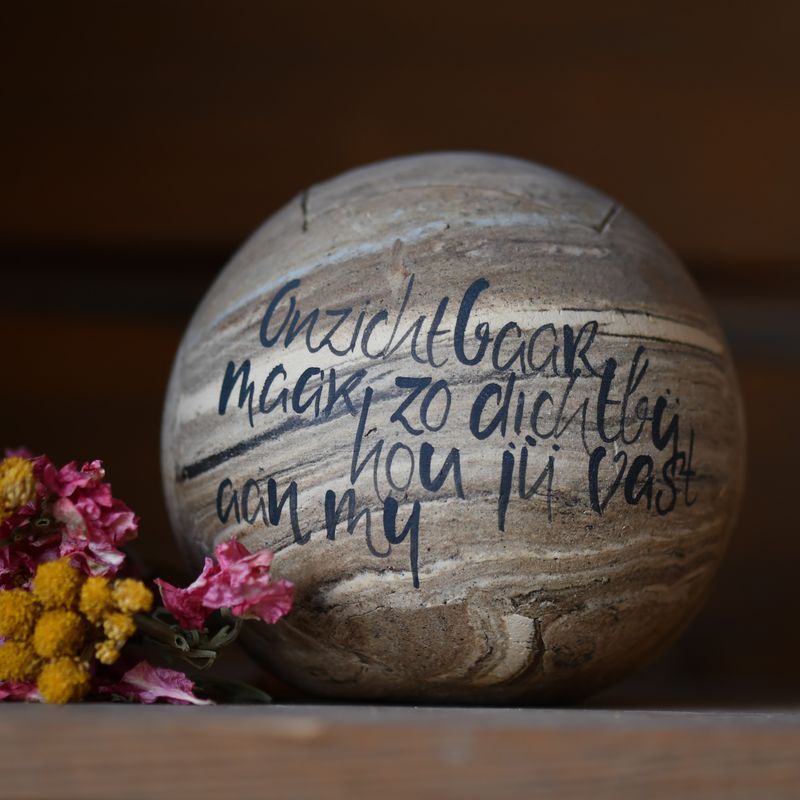 Onzichtbaar
maar zo dichtbij
hou jij vast
aan mij